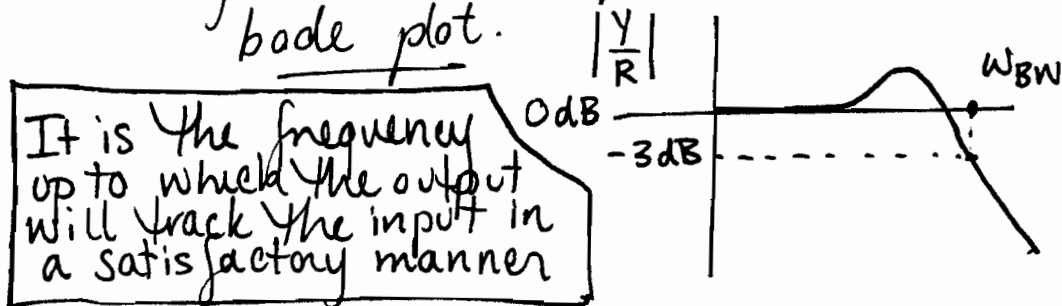 bode plot.
It is the frequency
up to which the output
will track the input in
a satisfactory manner
|Y/R|
ω_BW
0dB
-3dB